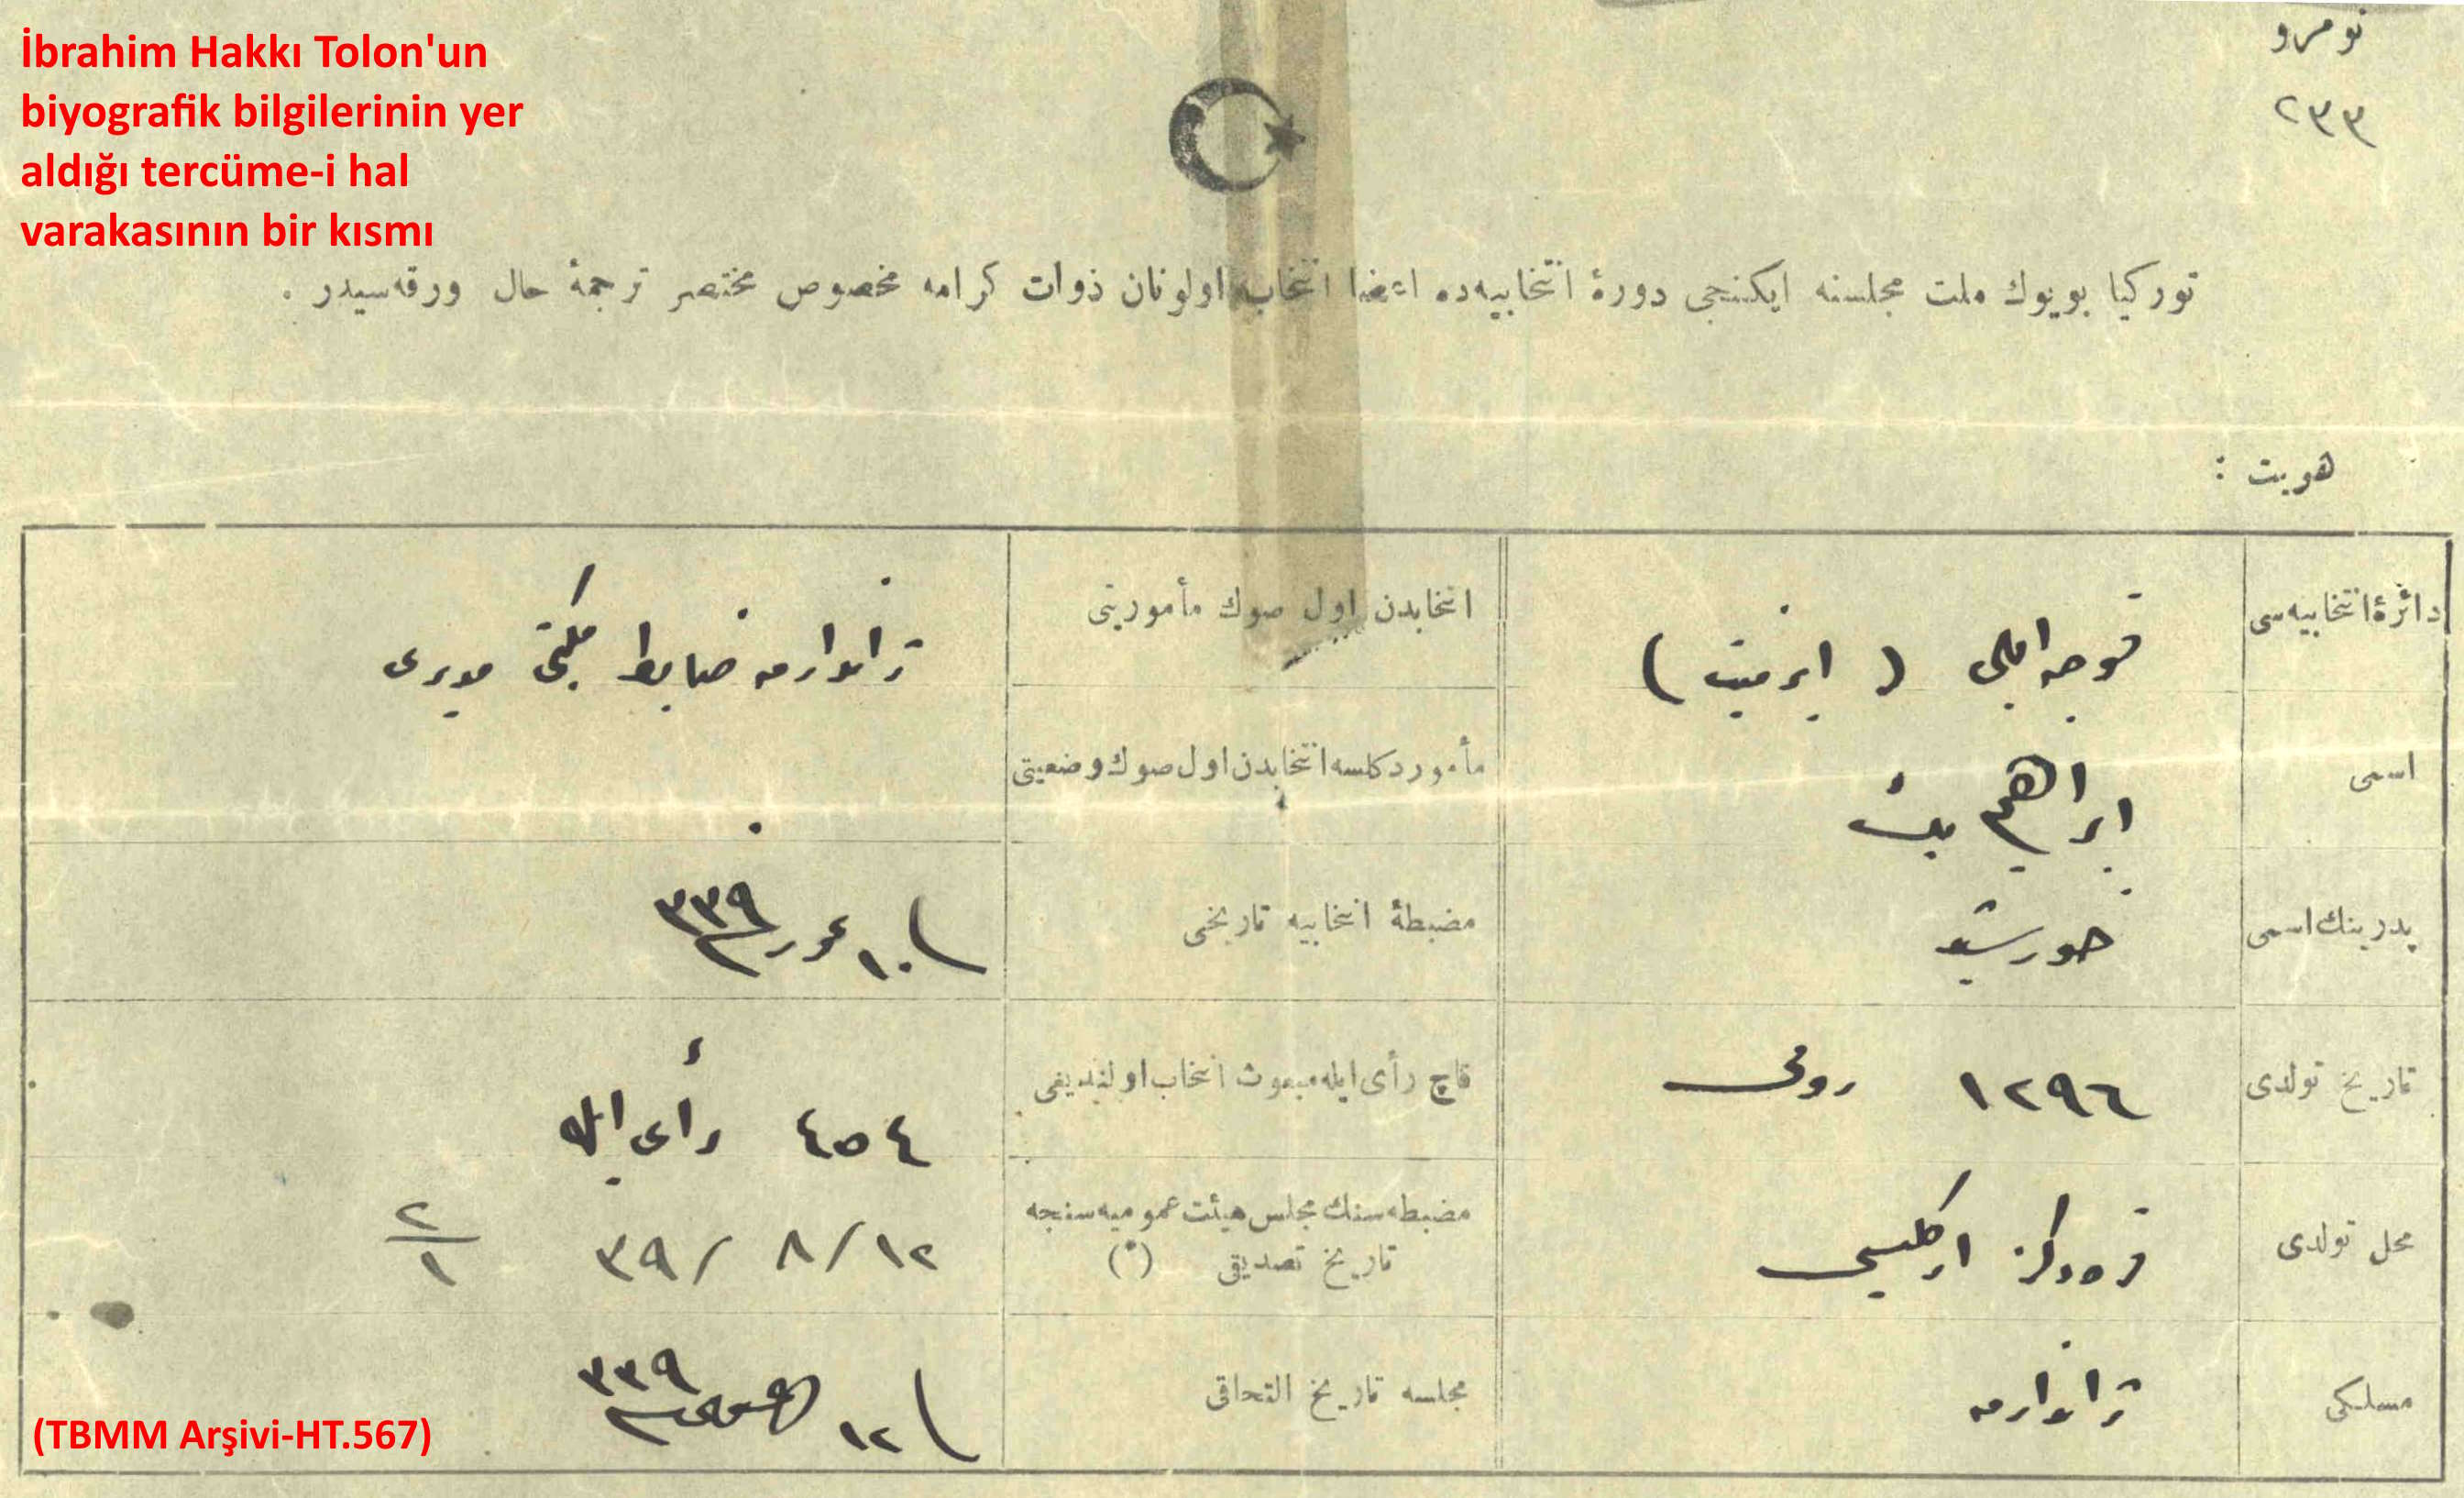 İbrahim Hakkı Tolon'un
biyografik bilgilerinin yer
aldığı tercüme-i hal
varakasının bir kısmı
نومرو
٢٣٣
توركيا بويوك ملت مجلسنه ايكنجى دورۀ انتخابيه‌ده اعضا انتخاب اولونان ذوات كرامه مخصوص مختصر ترجمۀ حال ورقه‌سيدر .
هويت :
دائرۀ انتخابيه‌سى
قوجه ايلى ( ازميت )
انتخابدن اول صوك مأموريتى
ژاندارمه ضابط مكتبى مديرى
اسمى
ابراهيم بك
مأمور دكلسه انتخابدن اول صوك وضعيتى
پدرينك اسمى
خورشيد
مضبطۀ انتخابيه تاريخى
١٠ تموز ٣٣٩
تاريخ تولدى
١٢٩٦ رومى
قاچ رأى ايله مبعوث انتخاب اولنديغى
٤٥٤ رأى ايله
محل تولدى
قره دكز اركليسى
مضبطه‌سنك مجلس هيئت عموميه‌سنجه
تاريخ تصديقى (*)
١٢/ ٨ /٣٩
٢
١
مسلكى
ژاندارمه
مجلسه تاريخ التحاقى
١٢ اغستوس ٣٣٩
(TBMM Arşivi-HT.567)